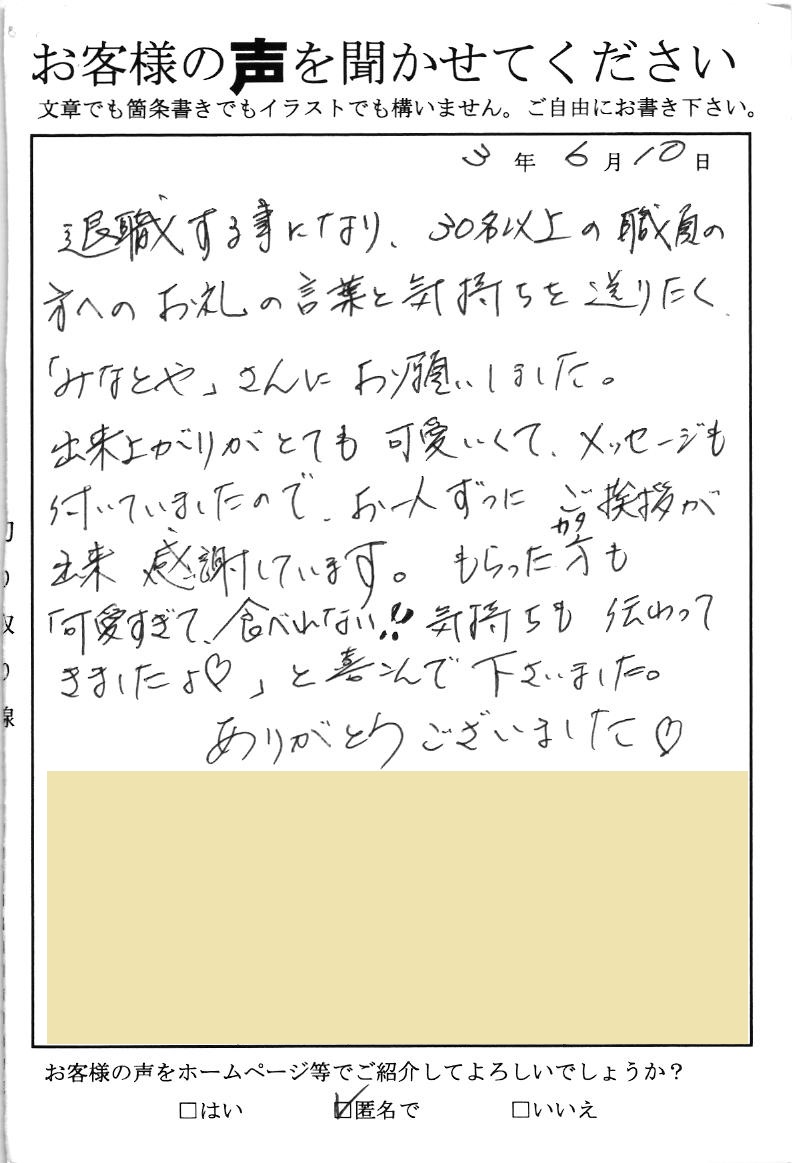 お客様の声を聞かせてください
文章でも箇条書きでもイラストでも構いません。ご自由にお書き下さい。
3年6月10日
退職する事になり、30名以上の職員の
方へのお礼の言葉と気持ちを送りたく、
「みなとや」さんにお願いしました。
出来上がりがとても可愛いくて、メッセージも
付いていましたので、お一人ずつにご挨拶が
出来感謝しています。もらった方も
カタ
「可愛すぎて、食べれない!!気持ちも伝わって
きましたよ♡」と喜こんで下さいました。
ありがとうございました♡
お客様の声をホームページ等でご紹介してよろしいでしょうか?
□はい ☑匿名で □いいえ